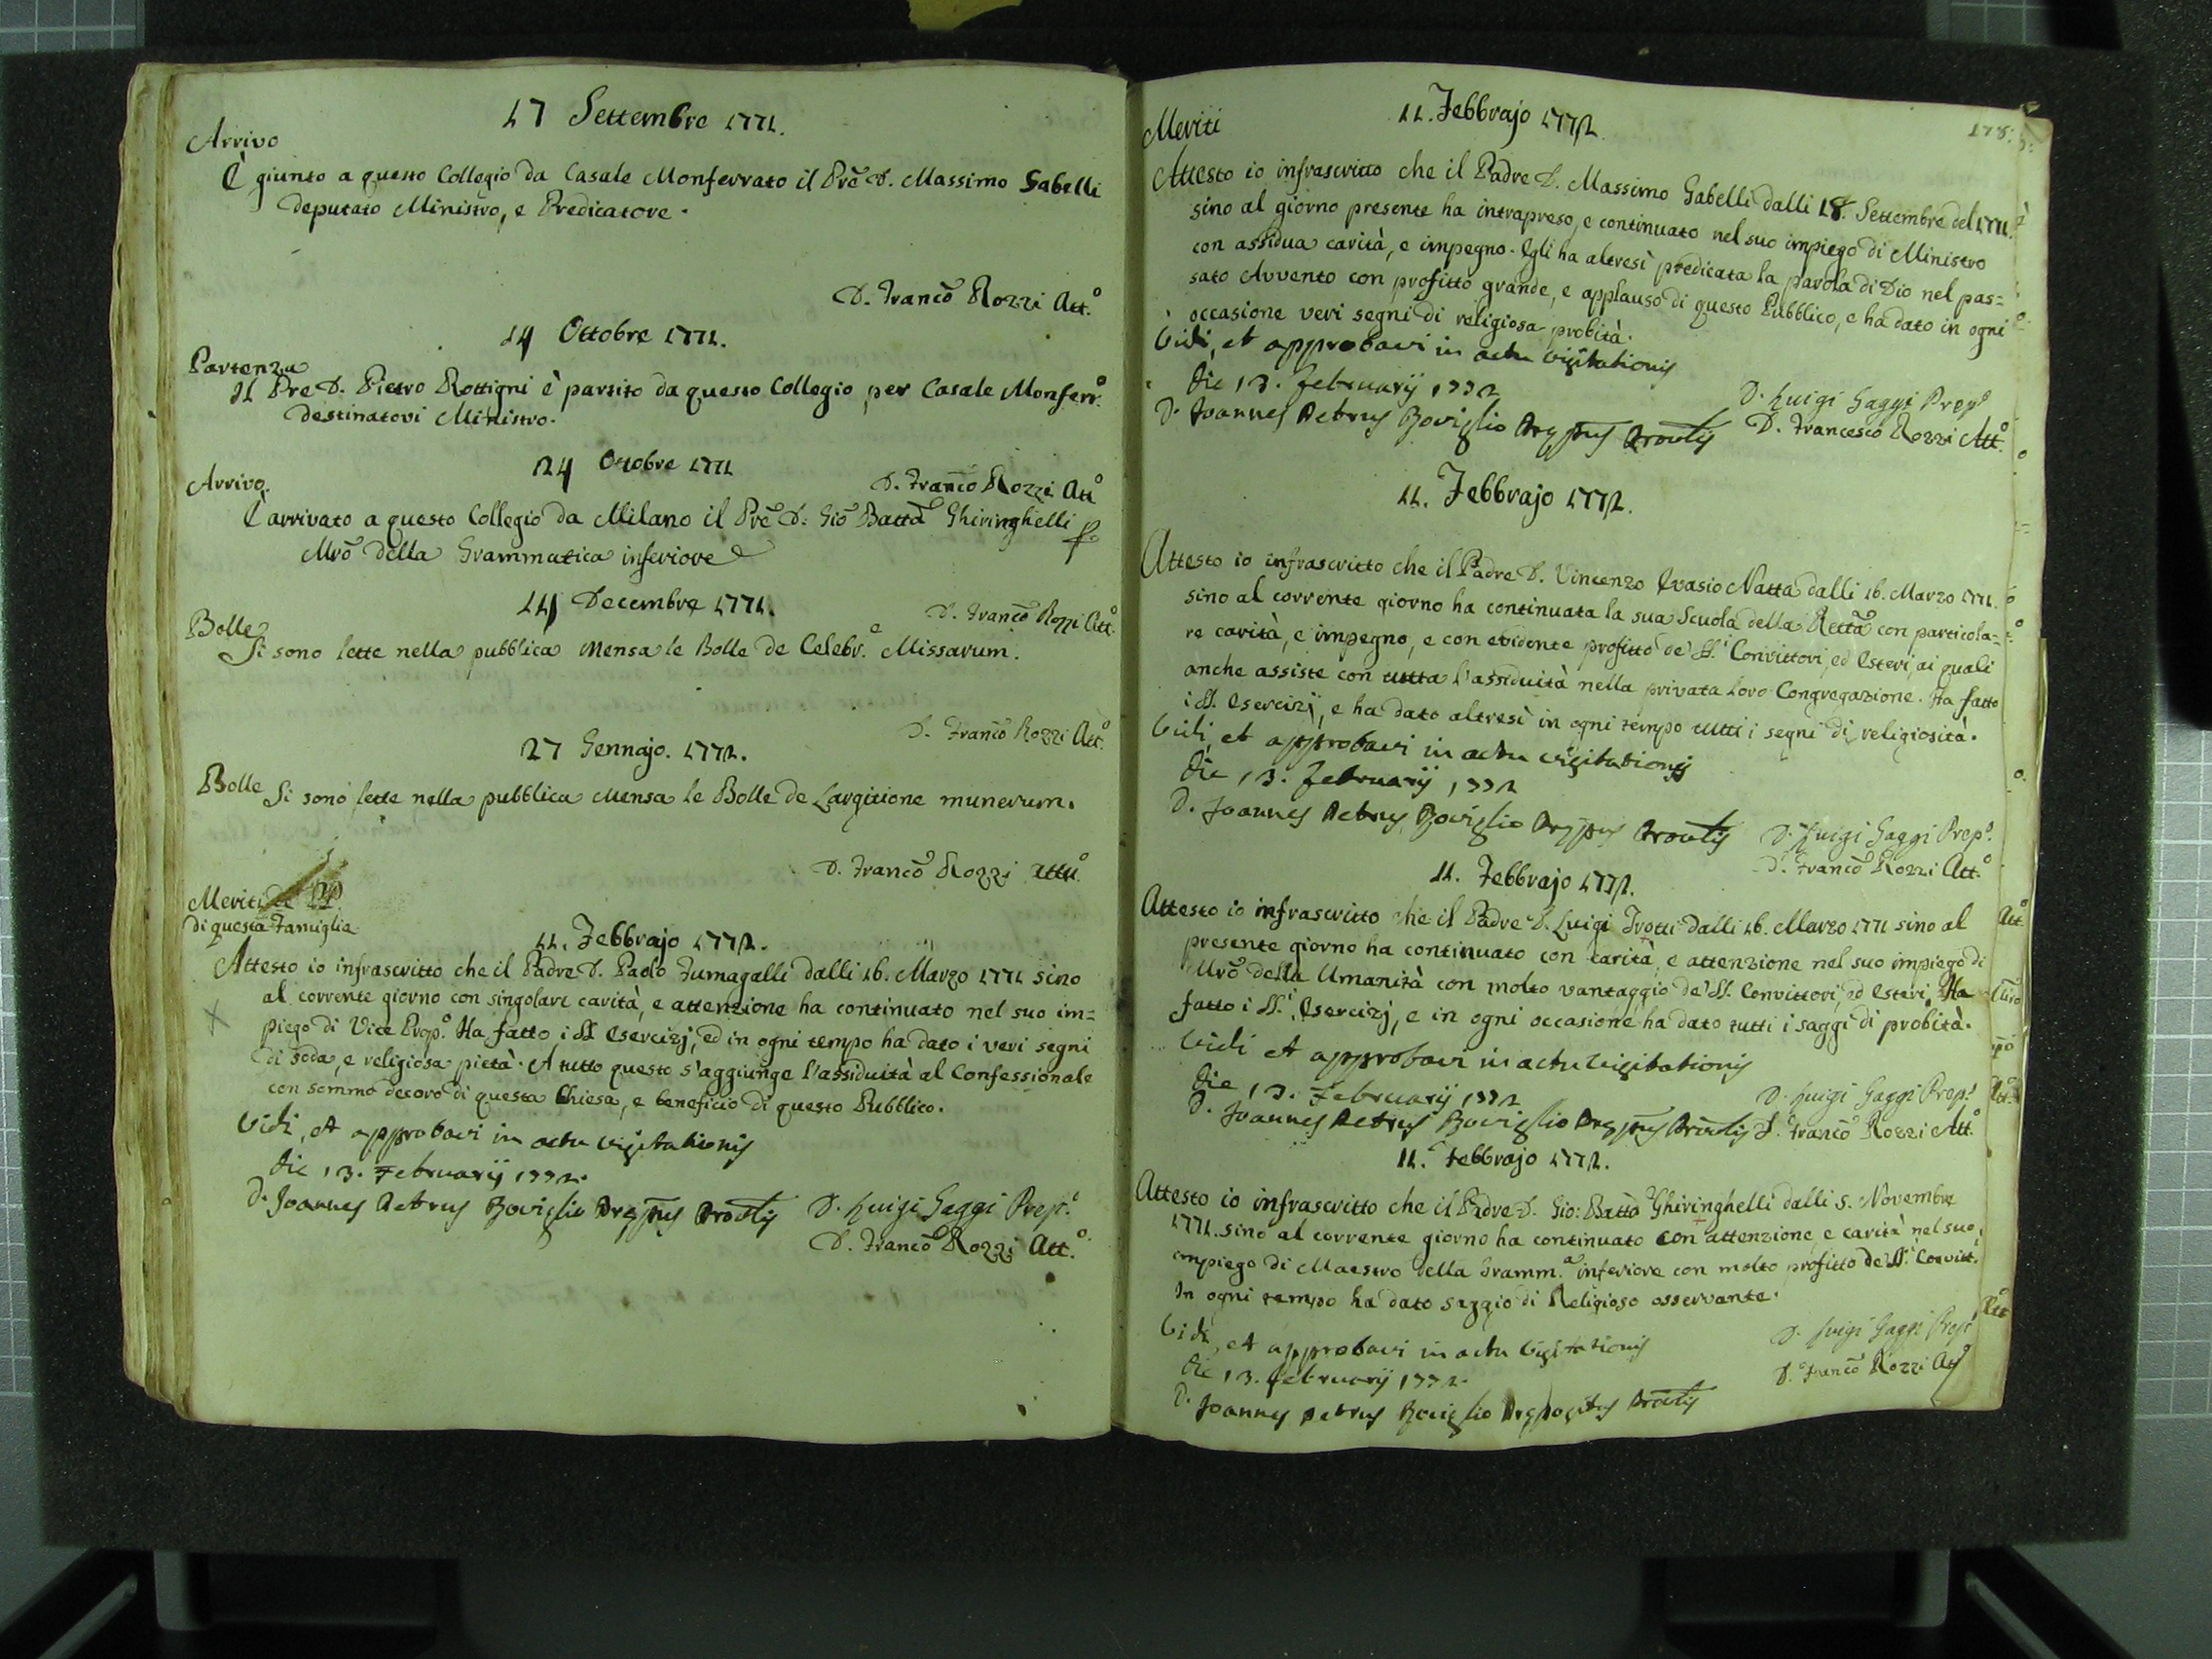 17 Settembre 1771.
Arrivo
È giunto a questo Collegio da Casale Monferrato il Prē D. Massimo Gabelli
deputato Ministro, e Predicatore.
D. Franco Rozzi Att.o
14 Ottobre 1771.
Partenza
Il Pre D. Pietro Rottigni è partito da questo Collegio per Casale Monferr.o
destinatovi Ministro.
24 Ottobre 1771
D. Franco Rozzi Att.o
Arrivo.
È arrivato a questo Collegio da Milano il Prē D: Gio Batta Ghiringhelli
Mrō della Grammatica inferiore
14 Decembre 1771.
D. Franco Rozzi Att.o
Bolle
Si sono lette nella pubblica Mensa le Bolle de Celebr.e Missarum.
D. Franco Rozzi Att.o
27 Gennajo. 1772.
Bolle Si sono lette nella pubblica Mensa le Bolle de Largitione munerum.
D. Franco Rozzi Att.o
Meriti de PP.
di questa Famiglia
11. Febbrajo 1772.
Attesto io infrascritto che il Padre D. Paolo Fumagalli dalli 16. Marzo 1771 sino
al corrente giorno con singolare carità, e attenzione ha continuato nel suo im=
piego di Vice Prep.o Ha fatto i SS. Esercizj, ed in ogni tempo ha dato i veri segni
di soda, e religiosa pietà. A tutto questo s'aggiunge l'assiduità al Confessionale
con sommo decoro di questa Chiesa, e beneficio di questo Pubblico.
Vidi, et approbavi in actu visitationis
die 13. Februarij 1772.
D. Joannes Petrus Boviglio Prepus Provlis
D. Luigi Gaggi Prep.o
D. Franco Rozzi Att.o
178.
11. Febbrajo 1772.
Meriti
Attesto io infrascritto che il Padre D. Massimo Gabelli dalli 18. Settembre del 1771.
sino al giorno presente ha intrapreso, e continuato nel suo impiego di Ministro
con assidua carità, e impegno. Egli ha altresì predicata la parola di Dio nel pas=
sato Avvento con profitto grande, e applauso di questo Pubblico, e ha dato in ogni
occasione veri segni di religiosa probità.
Vidi, et approbavi in actu visitationis
die 13. februarij 1772
D. Luigi Gaggi Prep.o
D. Joannes Petrus Boviglio Prepus Provlis
D. Francesco Rozzi Att.o
11. Febbrajo 1772.
Attesto io infrascritto che il Padre D. Vincenzo Evasio Natta dalli 16. Marzo 1771.
sino al corrente giorno ha continuata la sua Scuola della Rettca con particola=
re carità, e impegno, e con evidente profitto de' SS.i Convittori, ed Esteri, ai quali
anche assiste con tutta l'assiduità nella privata loro Congregazione. Ha fatto
i SS. Esercizj, e ha dato altresì in ogni tempo tutti i segni di religiosità.
Vidi, et approbavi in actu visitationis
die 13. februarij 1772
D. Joannes Petrus Boviglio Prepus Provlis
D. Luigi Gaggi Prep.o
D. Franco Rozzi Att.o
11. Febbrajo 1772.
Attesto io infrascritto che il Padre D. Luigi Trotti dalli 16. Marzo 1771 sino al
presente giorno ha continuato con carità, e attenzione nel suo impiego di
Mrō della Umanità con molto vantaggio de' SS. Convittori, ed Esteri. Ha
fatto i SS.i Esercizj, e in ogni occasione ha dato tutti i saggi di probità.
Vidi et approbavi in actu visitationis
die 13. Februarij 1772
D. Luigi Gaggi Prep.o
D. Joannes Petrus Boviglio Prepus Provlis
D. Franco Rozzi Att.o
11. Febbrajo 1772.
Attesto io infrascritto che il Padre D. Gio: Batta Ghiringhelli dalli 5. Novembre
1771. sino al corrente giorno ha continuato con attenzione, e carità nel suo
impiego di Maestro della Gramm.a inferiore con molto profitto de' SS.i Convitt.
In ogni tempo ha dato saggio di Religioso osservante.
Vidi, et approbavi in actu visitationis
D. Luigi Gaggi Prep.o
die 13. februarij 1772.
D. Franco Rozzi Att.o
D. Joannes Petrus Boviglio Prepositus Provlis